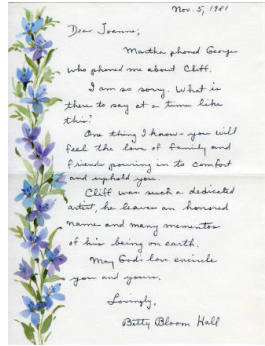 Nov. 5, 1981
Dear Joanne,
Martha phoned George
who phoned me about Cliff.
I am so sorry. What is
there to say at a time like
this?
One thing I know - you will
feel the love of family and
friends pouring in to comfort
and uphold you.
Cliff was such a dedicated
artist, he leaves an honored
name and many mementos
of his being on earth.
May God's love encircle
you and yours.
Lovingly,
Betty Bloom Hall